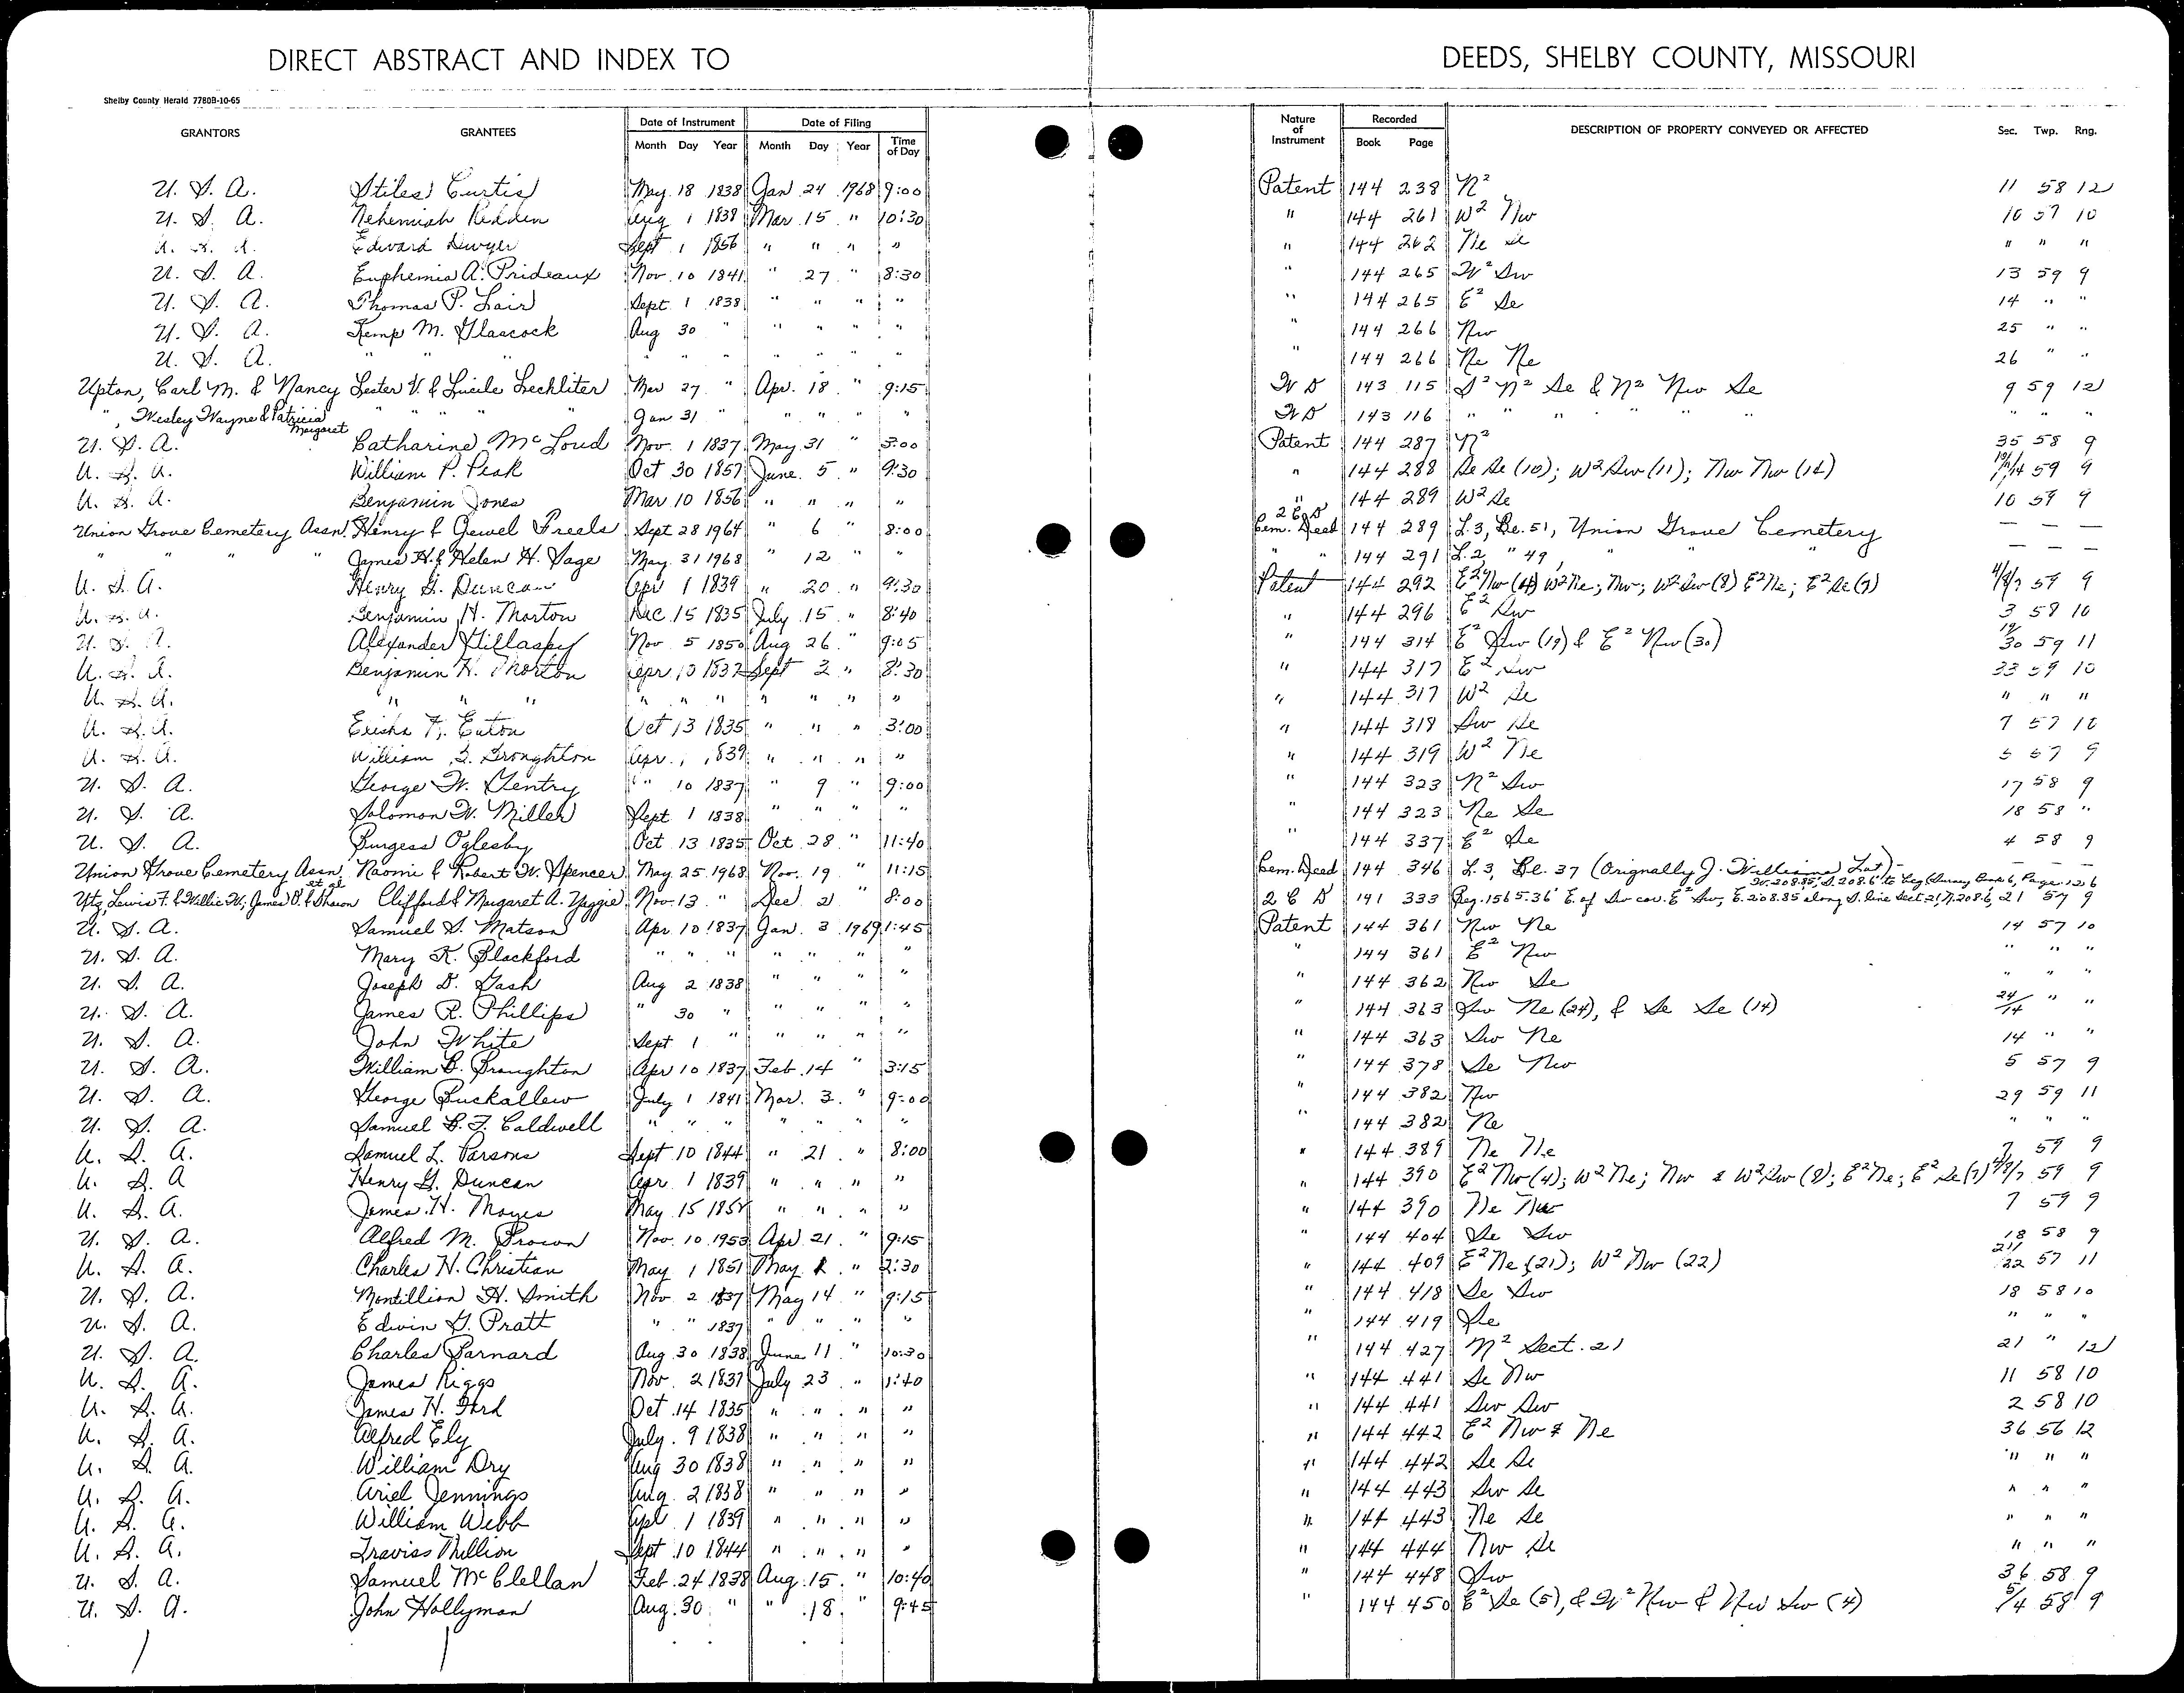 DIRECT ABSTRACT AND INDEX TO DEEDS, SHELBY COUNTY, MISSOURI
Shelby County Herald 7780B-10-65
GRANTORS GRANTEES Date of Instrument Date of Filing Nature of Instrument Recorded DESCRIPTION OF PROPERTY CONVEYED OR AFFECTED Sec. Twp. Rng.
Month Day Year Month Day Year Time of Day Book Page
U. S. A. Stiles Curtis May 18 1838 Jan 24 1968 9:00 Patent 144 238 N² 11 58 12
U. S. A. Nehemiah Redden Aug 1 1838 Mar 15 " 10:30 " 144 261 W² Nw 10 57 10
U. S. A. Edward Dwyer Sept 1 1856 " " " " " 144 262 Ne Se " " "
U. S. A. Euphemia A. Prideaux Nov. 10 1841 " 27 " 8:30 " 144 265 W² Sw 13 59 9
U. S. A. Thomas P. Lair Sept 1 1838 " " " " " 144 265 E² Se 14 " "
U. S. A. Kemp M. Glascock Aug 30 " " " " " " 144 266 Nw 25 " "
U. S. A. " " " " " " " " " " " 144 266 Ne Ne 26 " "
Upton, Carl M. & Nancy Lester V. & Lucile Lechliter Mar 27 " Apr. 18 " 9:15 W D 143 115 S² N² Se & N² Nw Se 9 59 12
", Wesley Wayne & Patricia Margaret " " " " Jan 31 " " " " " W D 143 116 " " " " " " " " "
U. S. A. Catharine McLoud Nov. 1 1837 May 31 " 3:00 Patent 144 287 N² 35 58 9
U. S. A. William P. Peak Oct 30 1857 June 5 " 9:30 " 144 288 Se Se (10); W² Sw (11); Nw Nw (14) 10/11/14 59 9
U. S. A. Benjamin Jones Mar 10 1856 " " " " " 144 289 W² Se 10 59 9
Union Grove Cemetery Assn. Henry & Jewel Freels Sept 28 1964 " 6 " 8:00 Cem. Deed 144 289 L. 3, Bl. 51, Union Grove Cemetery — — —
" " " " James H. & Helen H. Sage May 31 1968 " 12 " " " " 144 291 L. 2, " 49, " " " — — —
U. S. A. Henry G. Duncan Apr 1 1839 " 20 " 9:30 Patent 144 292 E² Nw (4) W² Ne; Nw; W² Sw (8) E² Ne; E² Se (7) 4/8/7 59 9
U. S. A. Benjamin H. Morton Dec 15 1835 July 15 " 8:40 " 144 296 E² Sw 3 58 10
U. S. A. Alexander Gillaspy Nov 5 1850 Aug 26 " 9:05 " 144 314 E² Sw (19) & E² Nw (30) 19/30 59 11
U. S. A. Benjamin H. Morton Apr 10 1837 Sept 3 " 8:30 " 144 317 E² Sw 33 59 10
U. S. A. " " " " " " " " " " " 144 317 W² Se " " "
U. S. A. Eaton Oct 13 1835 " " " 3:00 " 144 318 Sw Se 7 57 10
U. S. A. William Broughton Apr. 1 1839 " " " " " 144 319 W² Ne 5 57 9
U. S. A. George W. Gentry " 10 1837 " 9 " 9:00 " 144 323 N² Sw 17 58 9
U. S. A. Solomon W. Miller Sept 1 1838 " " " " " 144 323 Ne Se 18 58 "
U. S. A. Burgess Oglesby Oct 13 1835 Oct 28 " 11:40 " 144 337 E² Se 4 58 9
Union Grove Cemetery Assn. Naomi & Robert W. Spencer May 25 1968 Nov. 19 " 11:15 Cem. Deed 144 346 L. 3, Bl. 37 (Orignally J. Williams Lot) — — —
W. 208.85', S. 208.6' to beg (Survey Book 6, Page 126
Utz, Lewis F. & Willie W; James O. & Sharon et al Clifford & Margaret A. Yaggie Nov. 13 " Dec 2 " 8:00 2 C D 141 333 Beg. 1565.36' E. of Sw cor. E² Sw, E. 208.85 along S. line Sect. 21, N. 208.6, 21 57 9
U. S. A. Samuel S. Matson Apr 10 1837 Jan. 3 1969 1:45 Patent 144 361 Nw Ne 14 57 10
U. S. A. Mary K. Blackford " " " " " " " " 144 361 E² Nw " " "
U. S. A. Joseph D. Gash Aug 2 1838 " " " " " 144 362 Nw Se " " "
U. S. A. James R. Phillips " 30 " " " " " " 144 363 Sw Ne (24), & Se Se (14) 24/14 " "
U. S. A. John White Sept 1 " " " " " " 144 363 Sw Ne 14 " "
U. S. A. William B. Broughton Apr 10 1837 Feb 14 " 3:15 " 144 378 Se Nw 5 57 9
U. S. A. George Buckallew July 1 1841 Mar. 3 " 9:00 " 144 382 Nw 29 59 11
U. S. A. Samuel B. F. Caldwell " " " " " " " " 144 382 Ne " " "
U. S. A. Samuel L. Parsons Sept 10 1844 " 21 " 8:00 " 144 389 Ne Ne 7 59 9
U. S. A Henry G. Duncan Apr 1 1839 " " " " " 144 390 E² Nw (4); W² Ne; Nw & W² Sw (8); E² Ne; E² Se (7) 4/8/7 59 9
U. S. A. James H. Moyes May 15 " " " " " 144 390 Ne Nw 7 59 9
U. S. A. Alfred M. Brown Nov. 10 1953 Apr 21 " 9:15 " 144 404 Se Sw 18 58 9
U. S. A. Charles H. Christian May 1 1851 May " 2:30 " 144 409 E² Ne (21); W² Nw (22) 21/22 57 11
U. S. A. Montillion H. Smith Nov. 2 1837 May 14 " 9:15 " 144 418 Se Sw 18 58 10
U. S. A. Edwin G. Pratt " " 1837 " " " " " 144 419 Se " " "
U. S. A. Charles Barnard Aug 30 1838 June 11 " 10:30 " 144 427 N² Sect. 21 21 " 12
U. S. A. James Riggs Nov. 2 1837 July 23 " 1:40 " 144 441 Se Nw 11 58 10
U. S. A. James H. Ford Oct 14 1835 " " " " " 144 441 Sw Sw 2 58 10
U. S. A. Alfred Ely July 9 1838 " " " " " 144 442 E² Nw & Ne 36 56 12
U. S. A. William Dry Aug 30 1838 " " " " " 144 442 Se Se " " "
U. S. A. Ariel Jennings Aug. 2 1838 " " " " " 144 443 Sw Se " " "
U. S. A. William Webb Apl 1 1839 " " " " " 144 443 Ne Se " " "
U. S. A. Traviss Million Sept 10 1844 " " " " " 144 444 Nw Se " " "
U. S. A. Samuel McClellan Feb. 24 1838 Aug. 15 " 10:40 " 144 448 Sw 36 58 9
U. S. A. John Hollyman Aug. 30 " " 18 " 9:45 " 144 450 E² Se (5), & W² Nw & Nw Sw (4) 5/4 58 9